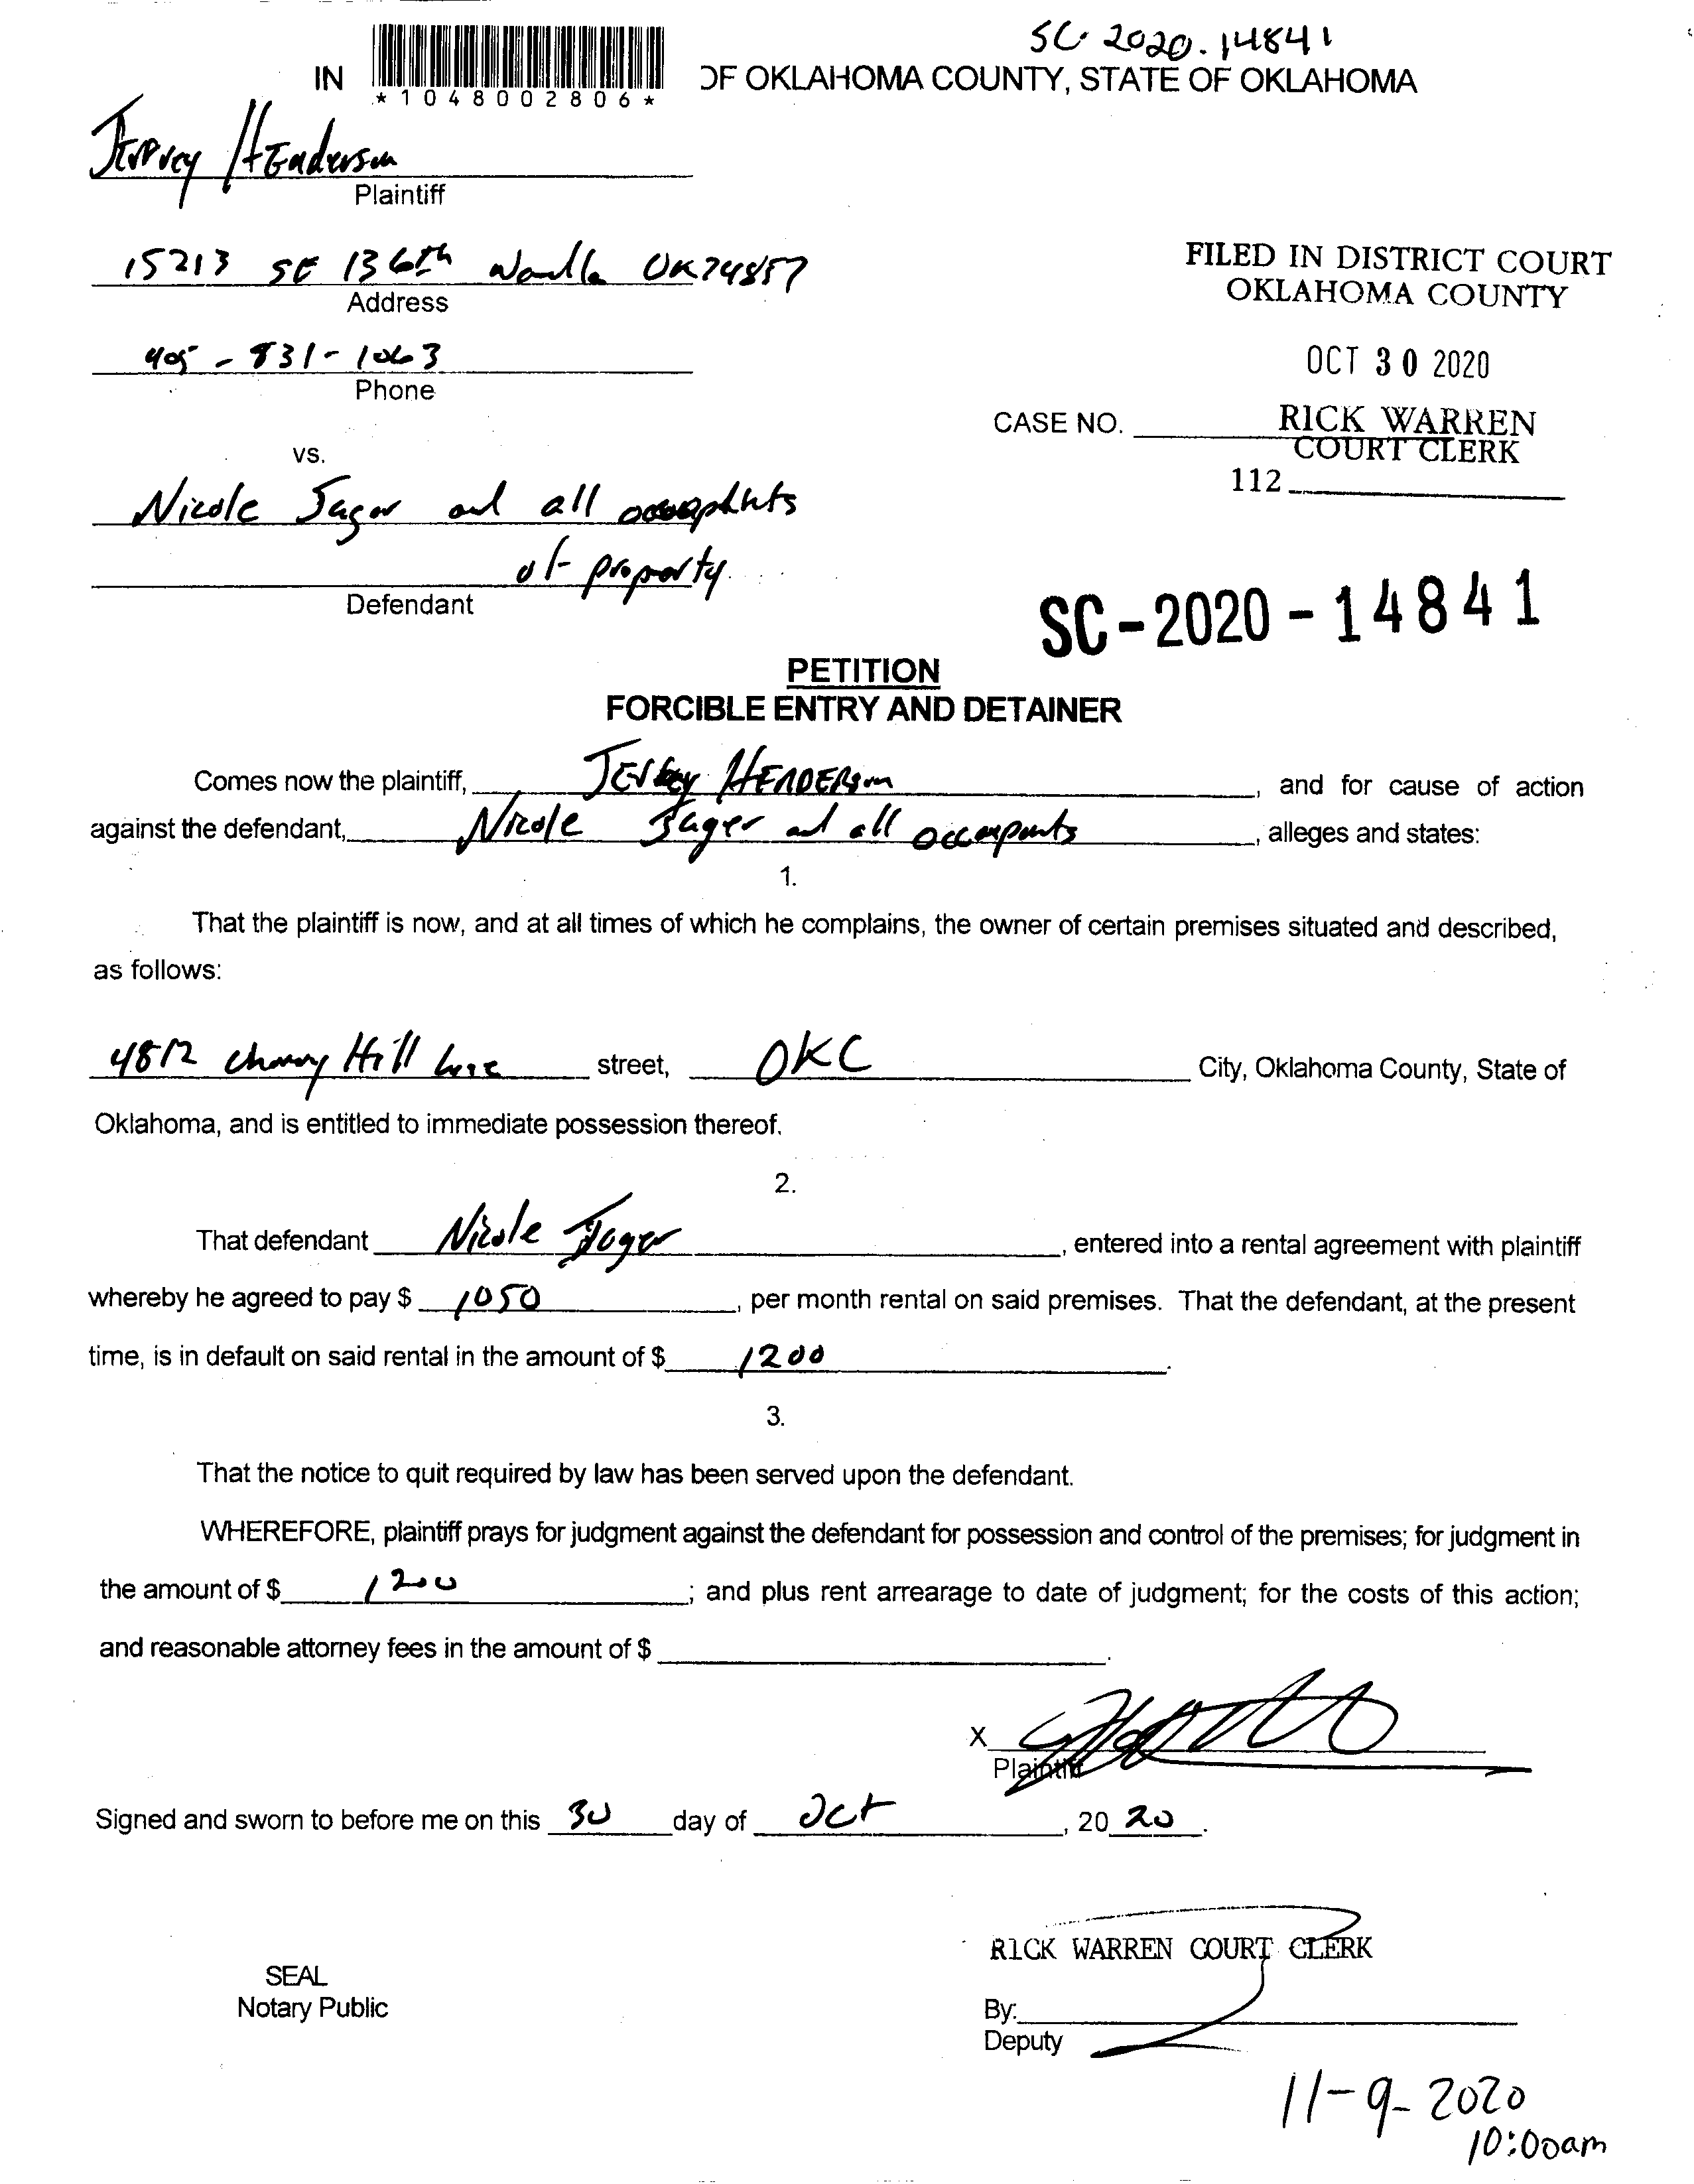 SC 2020.14841
IN OF OKLAHOMA COUNTY, STATE OF OKLAHOMA
*1048002806*
Henderson
Plaintiff
15213 SE 136th OK 74857
Address
405-831-1063
Phone
FILED IN DISTRICT COURT
OKLAHOMA COUNTY
OCT 30 2020
RICK WARREN
COURT CLERK
CASE NO.
112
vs.
Nicole Jager and all
of property
Defendant
SC-2020-14841
PETITION
FORCIBLE ENTRY AND DETAINER
Comes now the plaintiff, HENDERson, and for cause of action
against the defendant, Nicole Jager and all, alleges and states:
1.
That the plaintiff is now, and at all times of which he complains, the owner of certain premises situated and described,
as follows:
4812 Cherry Hill street, OKC City, Oklahoma County, State of
Oklahoma, and is entitled to immediate possession thereof.
2.
That defendant Nicole Jager, entered into a rental agreement with plaintiff
whereby he agreed to pay $ 1050, per month rental on said premises. That the defendant, at the present
time, is in default on said rental in the amount of $ 1200.
3.
That the notice to quit required by law has been served upon the defendant.
WHEREFORE, plaintiff prays for judgment against the defendant for possession and control of the premises; for judgment in
the amount of $ 1200; and plus rent arrearage to date of judgment; for the costs of this action;
and reasonable attorney fees in the amount of $ .
X
Plaintiff
Signed and sworn to before me on this 30 day of Oct, 20 20.
RICK WARREN COURT CLERK
SEAL
Notary Public
By:
Deputy
11-9-2020
10:00am